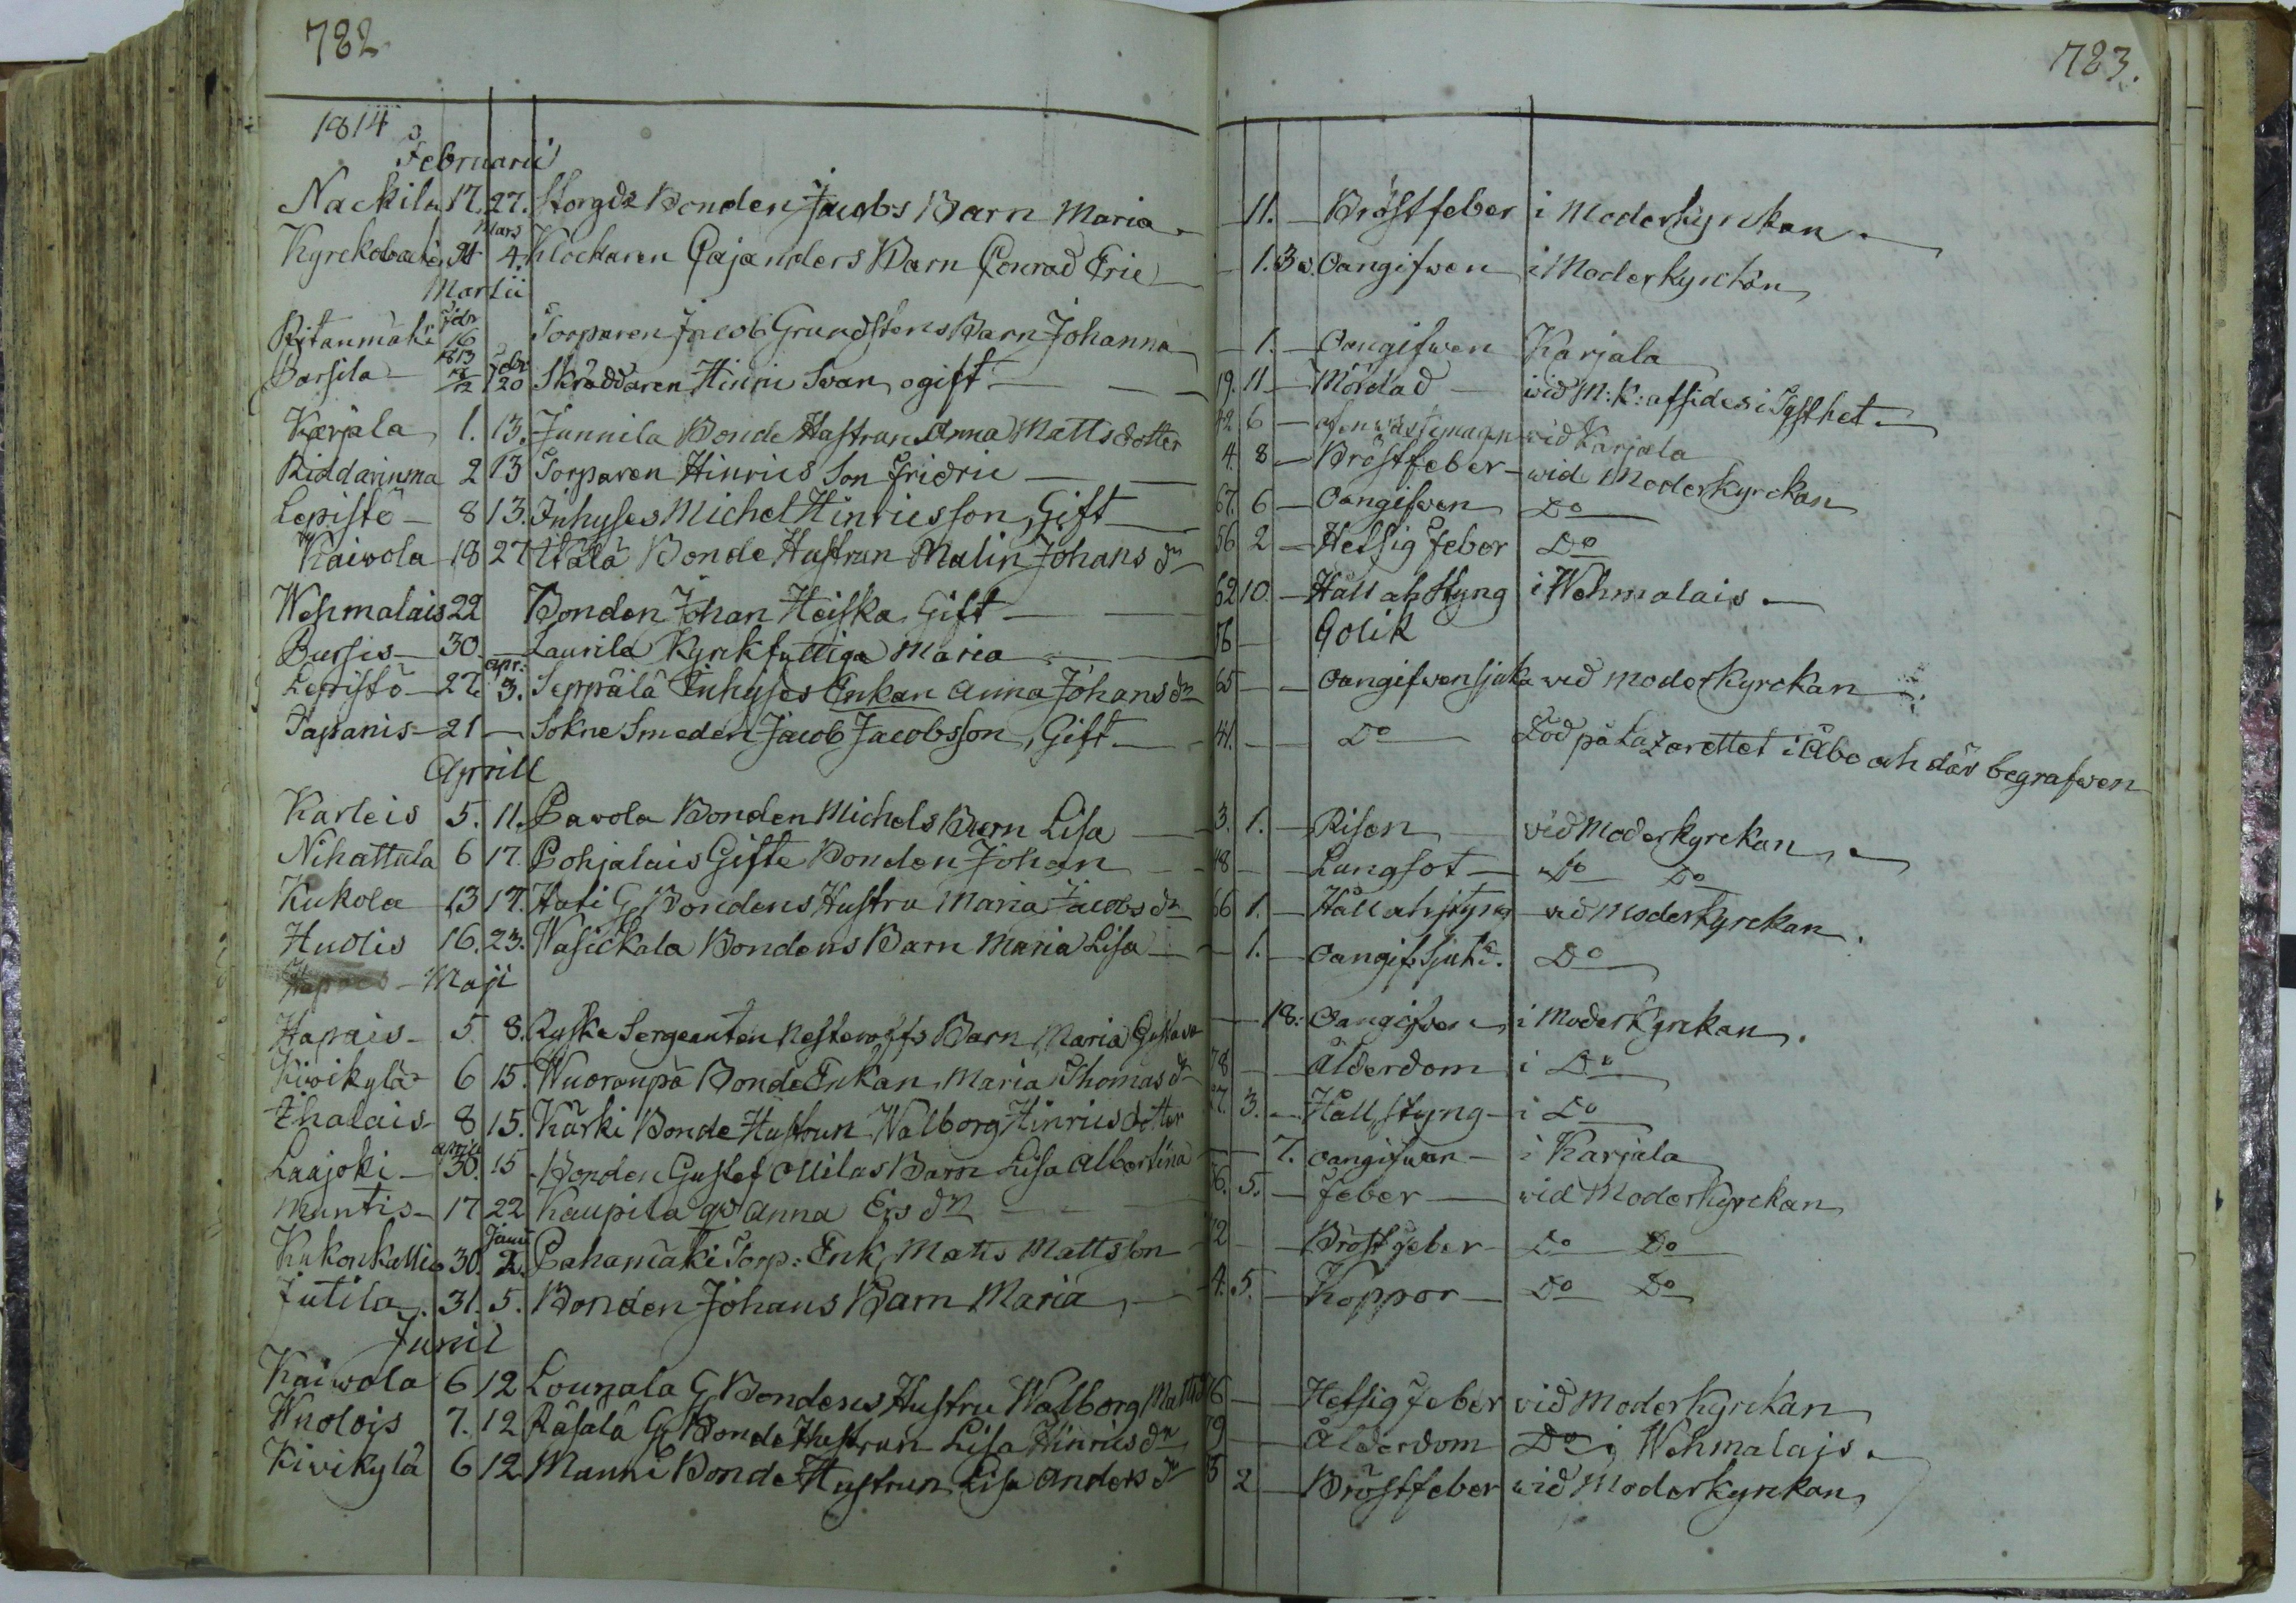 782
783.
1814
Februarii
Nackila 17. 27. Storgds Bonden Jacobs Barn Maria - 11. - Bröstfeber i Moderkyrckan.
Mars
4. Klockaren Cajanders Barn Conrad Eric - 1. 3 v. Oangifwen i Moderkyrckan
Martii
Febr
Ritanmäki 16 Torparen Jacob Grundstens Barn Johanna - 1. - Oangifwen Karjala
1813 Febr
Parsila - 20 Skräddaren Hinric Svan, ogift - 19. 11 - Mördad - wid M: K: afsides i Tysthet.
Karjala 1. 13. Junnila Bonde Hustrun Anna Mattsdotter 42 6 - wid Karjala
2 13 Torparen Hinrics Son Fridric - 4. 8 - Bröstfeber - wid Moderkyrckan
Lepistö - 8 13. Inhyses Michel Hinricsson, Gift 67. 6 - Oangifwen Do
Kaivola 18 27 Bonde Hustrun Malin Johans dr 56 2 - Hetsig Feber Do
Wehmalais 22 Bonden Johan Heiska, Gift - 62 10. - Håll ah Styng i Wehmalais.
Pursis - 30. - Laurila Kyrkfattiga Maria - 56 - Colik
apr:
Lepistö - 27. 3. Seppälä Inhyses Enkan Anna Johans dr 65 - - Oangifwen sjuka wid moderkyrckan
Tapanis - 21 - Sokne Smeden Jacob Jacobsson, Gift. - 41. - - Do Död på Lazarettet i Åbo ah där begrafwen
Aprill
Karleis 5. 11. Pavola Bonden Michels Barn Lisa - 3. 1. - Risen vid Moderkyrckan.
Nihattula 6 17. Pohjalais Gifte Bonden Johan - 48 - - Lungsot - Do Do
Kukola 13 17. Hati G Bondens Hustru Maria Jacobs dr 66 1. - Håll ah styng wid Moderkyrckan.
Hudis 16. 23. Wasickala Bondens Barn Maria Lisa - 1. - Oangif. Sjukd. Do
Maji
Hapais - 5 8. Ryska Sergeanten Nesteroffs Barn Maria Gustava - 18. Oangifwen i Moderkyrckan.
Kiwikylä 6 15. Wuorenpä Bonde Enkan Maria Thomas dr 78 - - Ålderdom i Do
Ihalais - 8 15. Kärki Bonde Hustrun Walborg Hinricsdotter 27. 3. - Håll, styng - i Do
April
Laajoki - 30. 15 - Bonden Gustaf Ollilas Barn Lisa Albertina - 7. Oangifwen - i Karjala
Muntis - 17 22 Kaupila Anna Ers dr - 5. - Feber - wid Moderkyrckan
Junii
Kukonkallio 30. 2. Pahamäki Torp: Enk. Matts Mattsson - Bröstfeber - Do Do
Jutila. 31. 5. Bonden Johans Barn Maria, - 4. 5. - Koppor - Do Do
Junii
Kaivola 6 12 Lounala G Bondens Hustru Walborg 76 - Hetsig Feber vid Moderkyrckan
Wuolois 7. 12 Räsälä G Bonde Hustrun Lisa Hinrics dr - Ålderdom Do i Wehmalais.
Kivikylä 6 12 Manni Bonde Hustrun Lisa Anders dr 2 - Bröstfeber wid Moderkyrckan